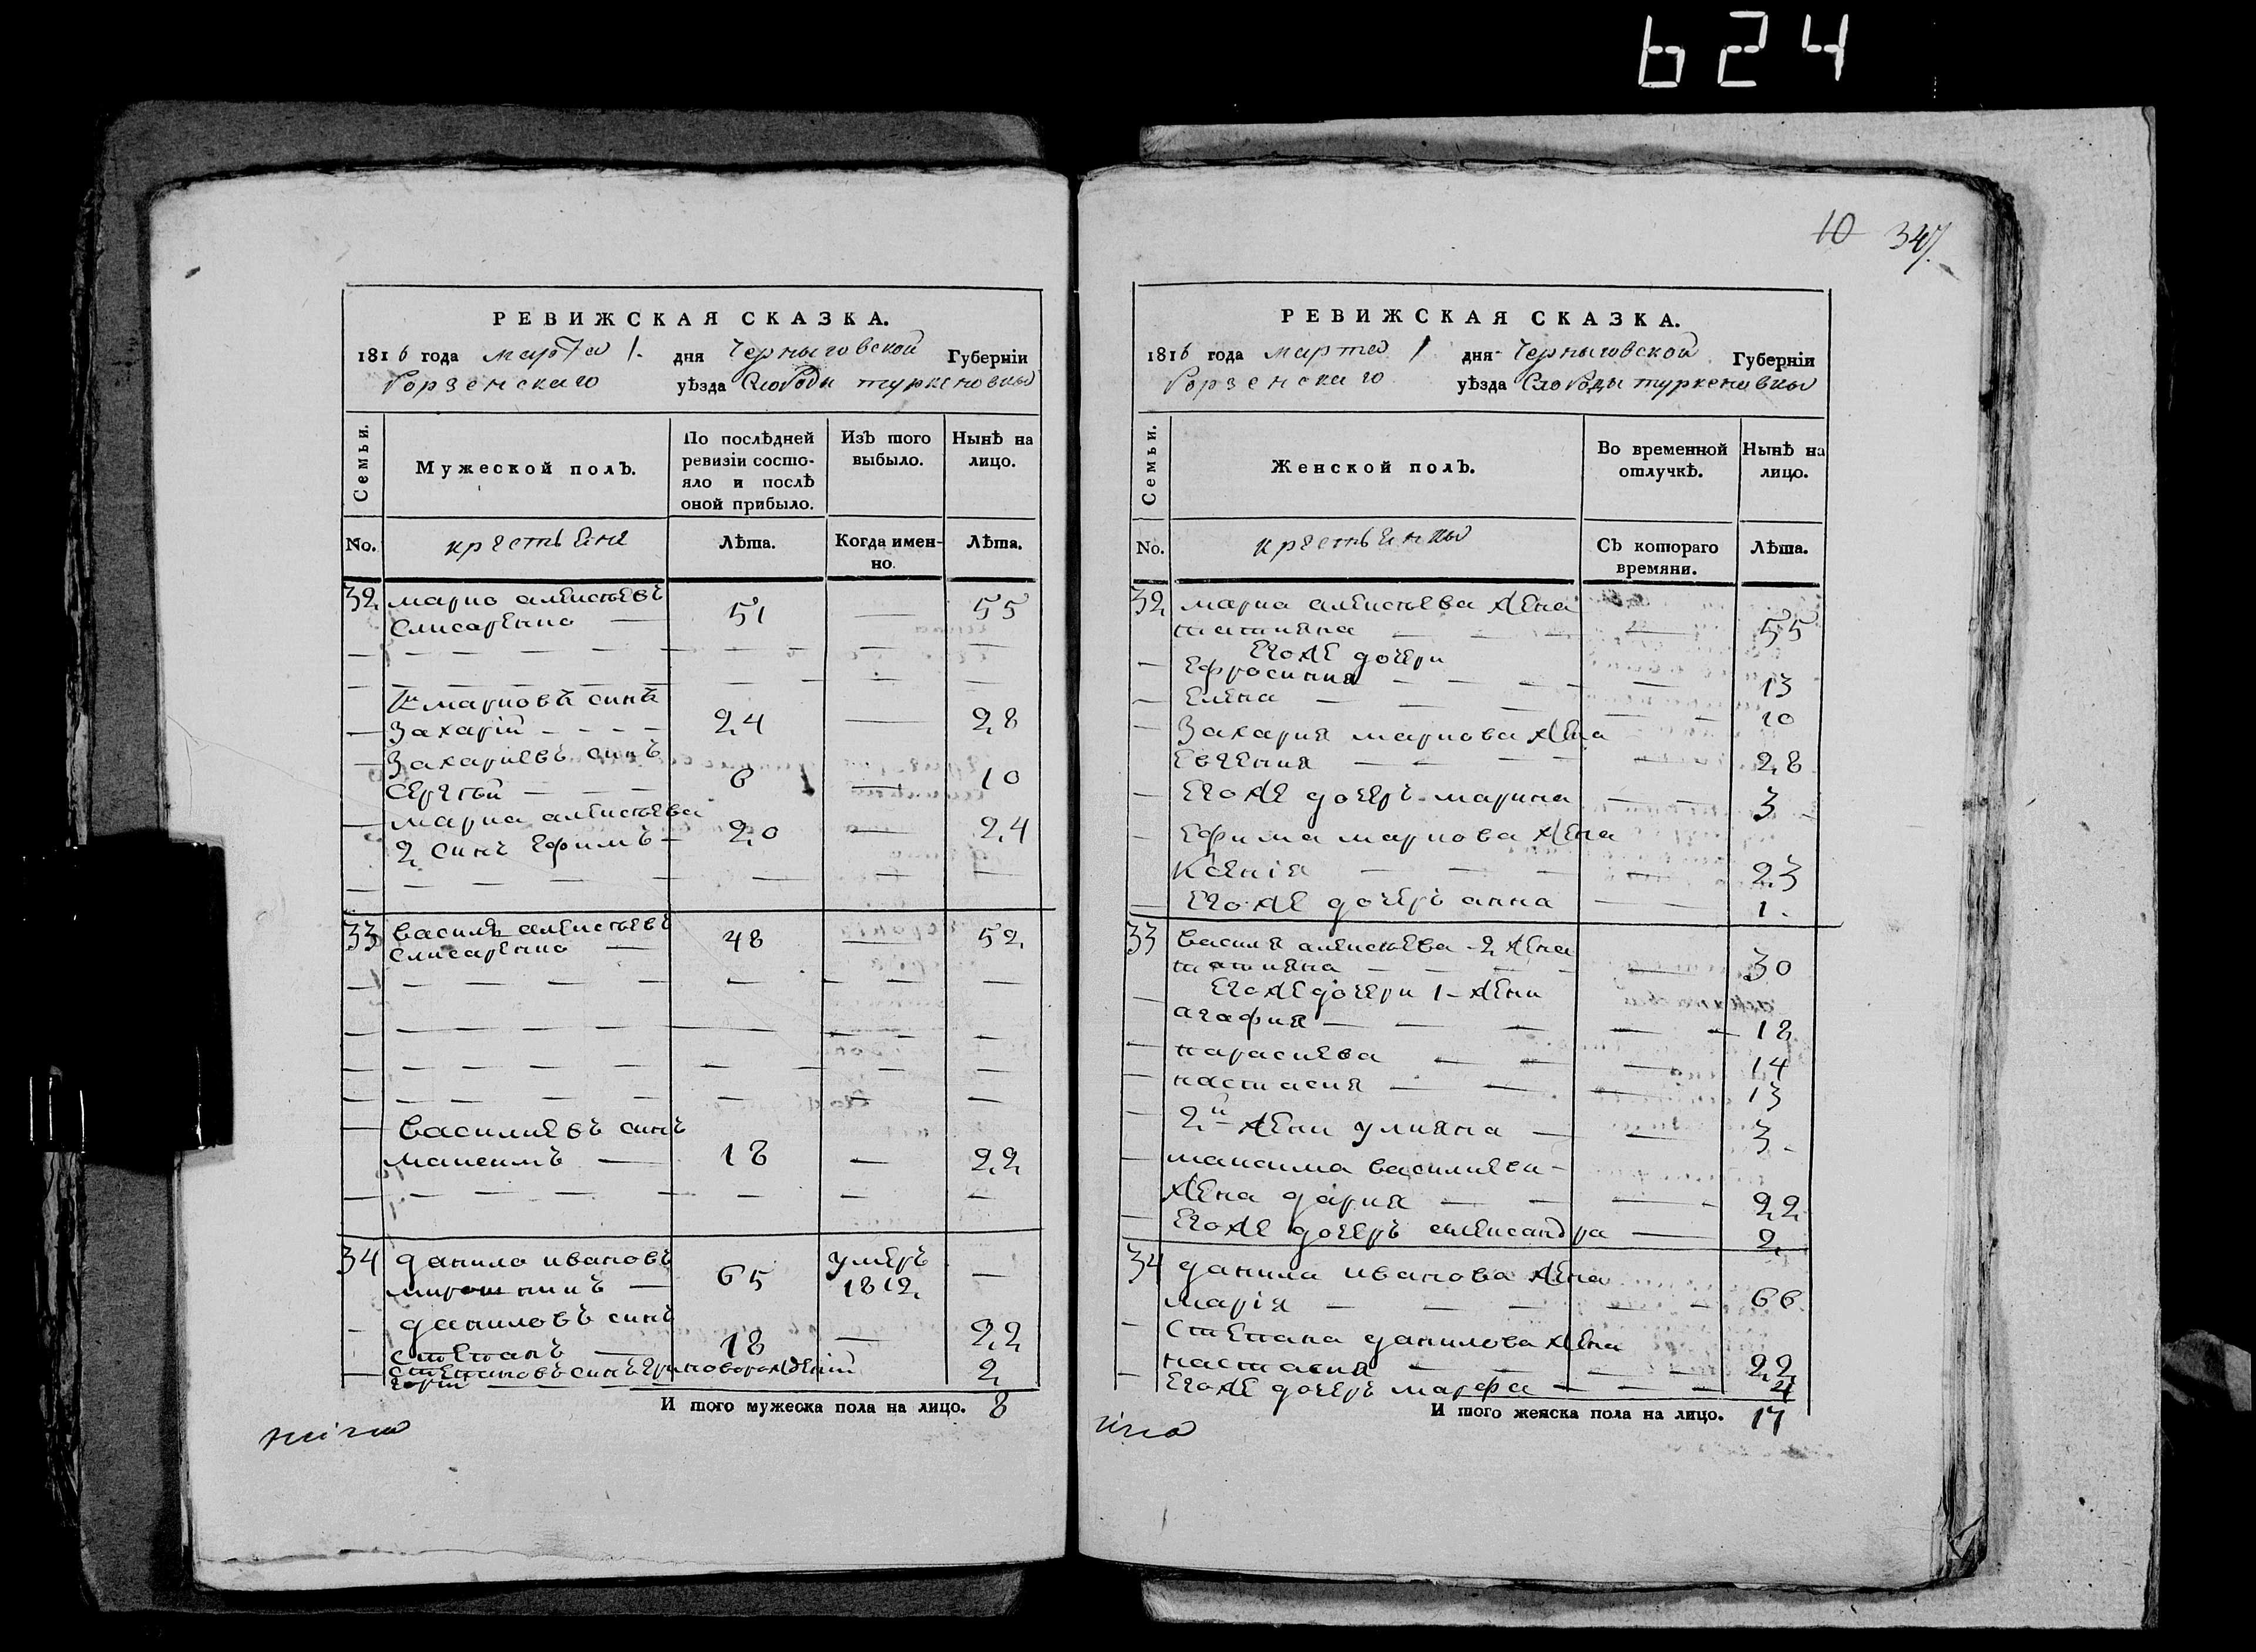 624
10 347.
РЕВИЖСКАЯ СКАЗКА.
1816 года марта 1. дня Черныговской Губерніи
Борзенскаго уѣзда Слободы туркеновкы
Семьи.
Мужеской полъ.
По послѣдней ревизіи состо-
яло и послѣ
оной прибыло.
Изъ того
выбыло.
Нынѣ на
лицо.
No. крестьяне Лѣта. Когда имен-
но. Лѣта.
32 марко алексѣевъ
слисаренко — 51 — 55
марковъ синъ
Захарій - - - 24 — 28
Захариевъ синъ
Сергѣй — — 6 — 10
марка алексѣева
2 синъ Ефимъ — 20 — 24
33 василь алексѣевъ
слисаренко — 48 — 52
василиевъ синъ
максимъ — 18 — 22
34 данило ивановъ умеръ
мирошникъ — 65 1812 —
даниловъ синъ
Степанъ — 18 — 22
Степановъ синъ новорожденій 2
И того мужеска пола на лицо. 8
РЕВИЖСКАЯ СКАЗКА.
1816 года марта 1 дня Черныговской Губерніи
Борзенскаго уѣзда Слободы туркеновкы
Семьи.
Женской полъ.
Во временной
отлучкѣ.
Нынѣ на
лицо.
No. крестьянкы Съ котораго
времяни. Лѣта.
32 марка алексѣева жена
татияна — — — — 55
Егоже дочери
Ефросиния — — — — 13
Елена — — — — — 10
Захария маркова жена
Евгения — — — — 28
Егоже дочеръ марина — — 3
Ефима маркова жена
Ксенія — — — — 23
Егоже дочеръ анна — — 1.
33 василя алексѣева 2 жена
татияна — — — — 30
Егоже дочери 1 - жени
агафия — — — — — 18
парасцева — — — 14
настасия — — — 13
2й жени улияна — — 3
максима василиева
жена дария — — — 22
Егоже дочеръ александра — 2
34 данила иванова жена
марія — — — — — 66
Степана данилова жена
настасия — — — — 22
Егоже дочеръ марфа — — — 4
И того женска пола на лицо. 17